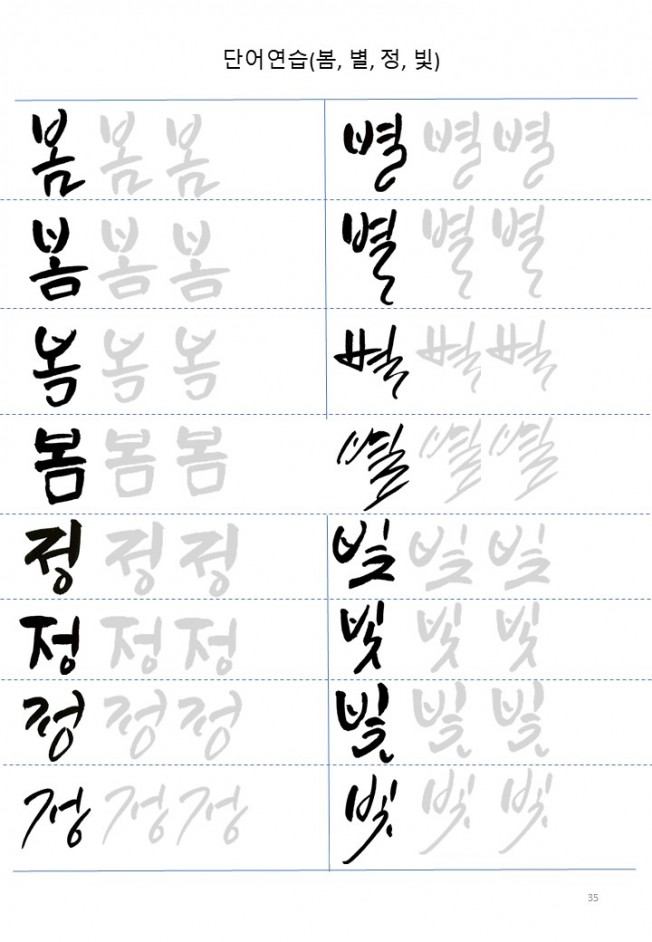 단어연습(봄, 별, 정, 빛)
봄 봄 봄 별 별 별
봄 봄 봄 별 별 별
봄 봄 봄 별 별 별
봄 봄 봄 별 별 별
정 정 정 빛 빛 빛
정 정 정 빛 빛 빛
정 정 정 빛 빛 빛
정 정 정 빛 빛 빛
35